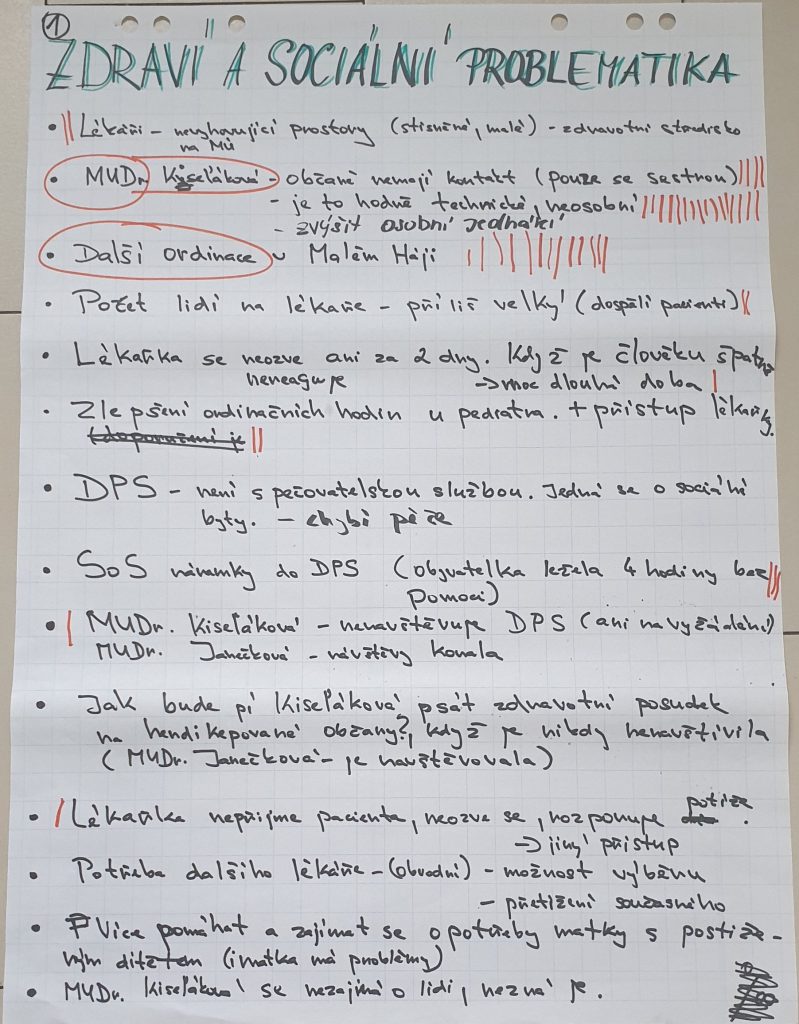 1
ZDRAVÍ A SOCIÁLNÍ PROBLEMATIKA
• Lékaři – nevyhovující prostory (stísněné, malé) - zdravotní středisko
na MÚ
• MUDr. Kiseľáková - občané nemají kontakt (pouze se sestrou)
- je to hodně technické, neosobní
- zvýšit osobní jednání
• Další ordinace v Malém Háji
• Počet lidí na lékaře - příliš velký (dospělí pacienti)
• Lékařka se neozve ani za 2 dny. Když je člověku špatně
nereaguje → moc dlouhá doba
• Zlepšení ordinačních hodin u pediatra. + přístup lékařky.
(doporučení je
• DPS – není s pečovatelskou službou. Jedná se o sociální
byty. - chybí péče
• SoS náramky do DPS (obyvatelka ležela 4 hodiny bez
pomoci)
• MUDr. Kiseľáková - nenavštěvuje DPS (ani na vyžádání)
MUDr. Janečková - návštěvy konala
• Jak bude pí Kiseľáková psát zdravotní posudek
na hendikepované občany?, když je nikdy nenavštívila
(MUDr. Janečková - je navštěvovala)
• Lékařka nepřijme pacienta, neozve se, rozporuje potíže.
→ jiný přístup
• Potřeba dalšího lékaře – (obvodní) - možnost výběru
- přetížení současného
• Více pomáhat a zajímat se o potřeby matky s postiže-
ným dítětem (i matka má problémy)
• MUDr. Kiseľáková se nezajímá o lidi, nezná je.